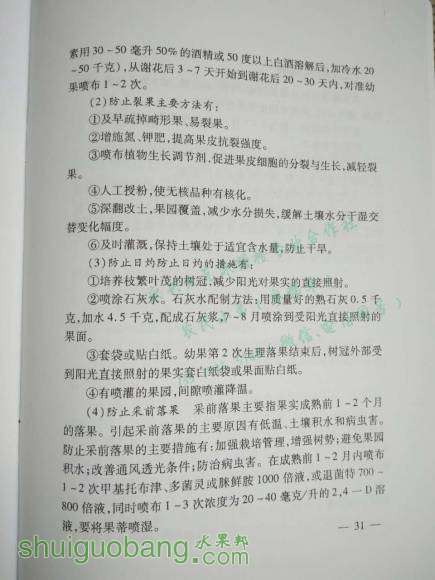 素用30～50毫升50%的酒精或50度以上白酒溶解后,加冷水20
～50千克),从谢花后3～7天开始到谢花后20～30天内,对准幼
果喷布1～2次。
(2)防止裂果主要方法有:
①及早疏掉畸形果、易裂果。
②增施氮、钾肥,提高果皮抗裂强度。
③喷布植物生长调节剂,促进果皮细胞的分裂与生长,减轻裂
果。
④人工授粉,使无核品种有核化。
⑤深翻改土,果园覆盖,减少水分损失,缓解土壤水分干湿交
替变化幅度。
⑥及时灌溉,保持土壤处于适宜含水量,防止干旱。
(3)防止日灼防止日灼的措施有:
①培养枝繁叶茂的树冠,减少阳光对果实的直接照射。
②喷涂石灰水。石灰水配制方法:用质量好的熟石灰0.5千
克,加水4.5千克,配成石灰乳,7～8月喷涂到受阳光直接照射的
果面。
③套袋或贴白纸。幼果第2次生理落果结束后,树冠外部受
到阳光直接照射的果实套白纸袋或果面贴白纸。
④有喷灌的果园,间隙喷灌降温。
(4)防止采前落果 采前落果主要指果实成熟前1～2个月
的落果。引起采前落果的主要原因有低温、土壤积水和病虫害。
防止采前落果的主要措施有:加强栽培管理,增强树势;避免果园
积水;改善通风透光条件;防治病虫害。在成熟前1～2个月内喷布
1～2次甲基托布津、多菌灵或脒鲜胺1000倍液,或退菌特700～
800倍液,同时喷布1～3次浓度为20～40毫克/升的2,4—D溶
液,要将果蒂喷湿。
— 31 —
shuiguobang.com
水果邦